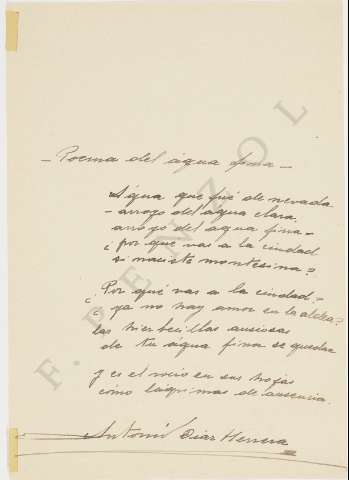 — Poema del agua fina —
Agua que fué de nevada
- arroyo del agua clara,
arroyo del agua fina -
¿ por qué vas a la ciudad
si naciste montesina?
¿ Por qué vas a la ciudad?
¿ ya no hay amor en la aldea?
las hierbecillas ansiosas
de tu agua fina se quedan
y es el rocío en sus hojas
como lágrimas de ausencia.
Antonio Díaz Herrera
F. PENZOL